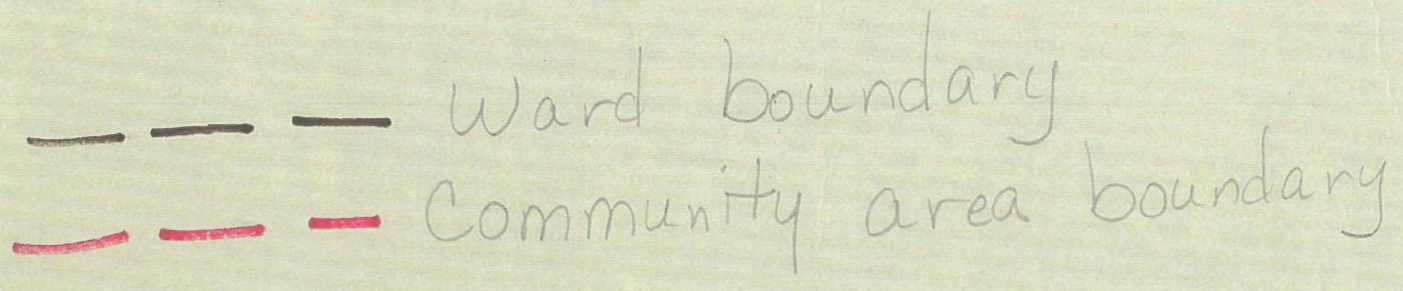 Ward boundary
Community area boundary